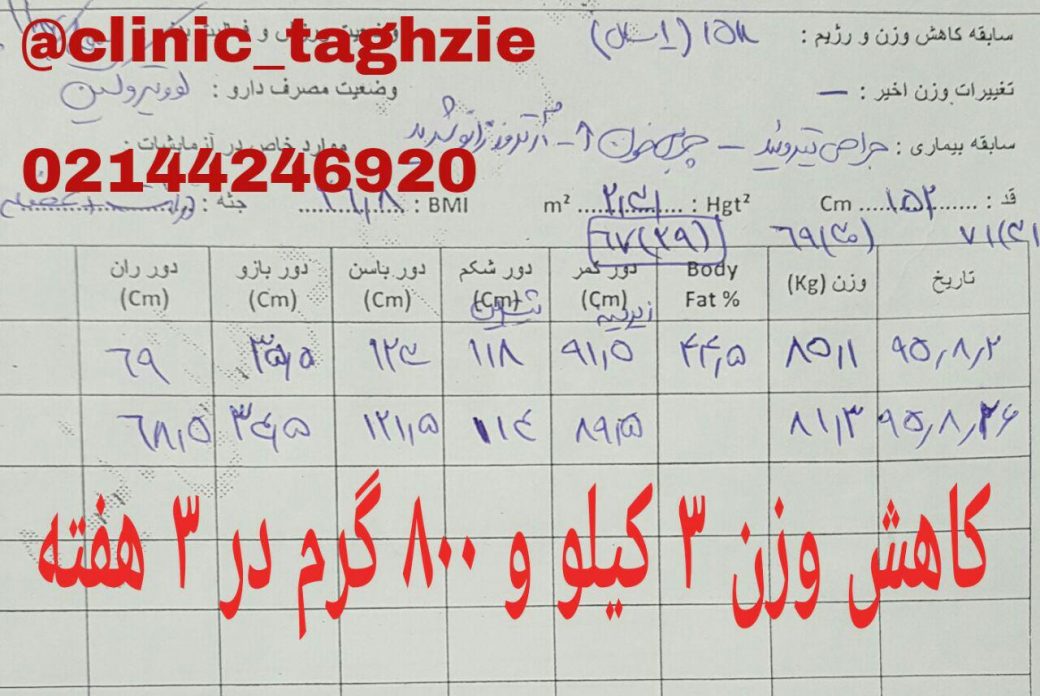 @clinic_taghzie
سابقه کاهش وزن و رژیم :
تغییرات وزن اخیر : —
وضعیت مصرف دارو : لووتیروکسین
02144246920
سابقه بیماری : جراحی تیروئید — چربی خون ↑ — آرتروز زانو شدید
موارد خاص در آزمایشات :
قد : ۱۵۲ Cm
Hgt² : m²
BMI :
جثه :
۷۱(۴۱) ۶۹(۴۰) ۶۷(۳۹)
تاریخ وزن (Kg) Body Fat % دور کمر (Cm) دور شکم (Cm) دور باسن (Cm) دور بازو (Cm) دور ران (Cm)
۹۵٫۸٫۲ ۸۵٫۱ ۴۴٫۵ ۹۱٫۵ ۱۱۸ ۱۲۴ ۳۵٫۵ ۶۹
۹۵٫۸٫۲۶ ۸۱٫۳ ۸۹٫۵ ۱۱۴ ۱۲۱٫۵ ۳۴٫۵ ۶۸٫۵
کاهش وزن ۳ کیلو و ۸۰۰ گرم در ۳ هفته